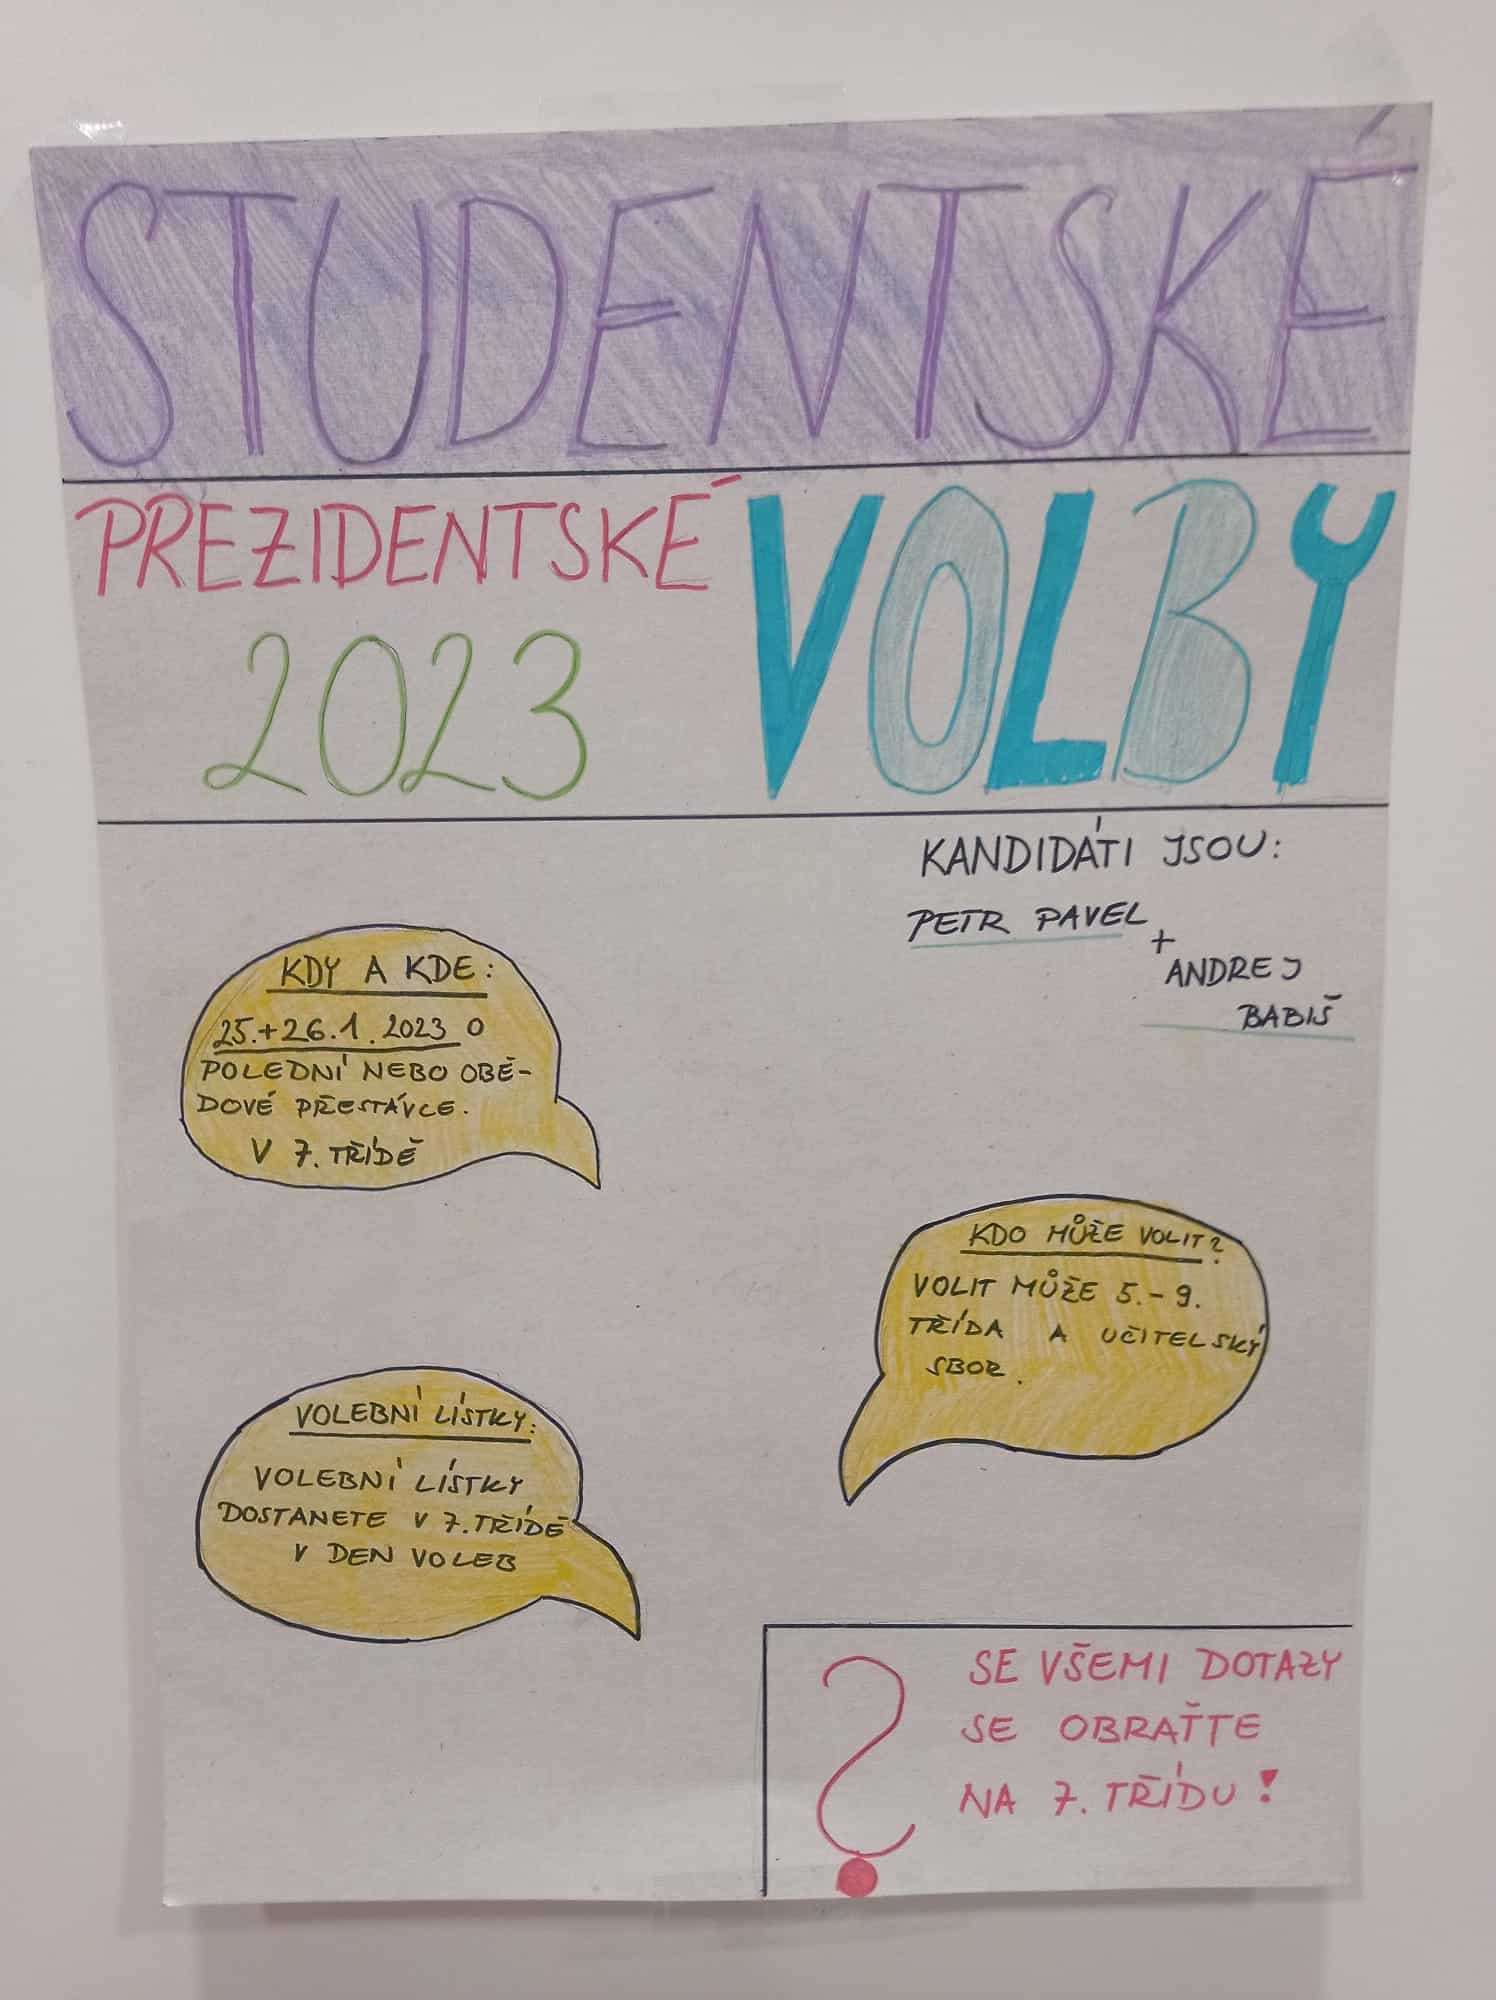 STUDENTSKÉ
PREZIDENTSKÉ VOLBY
2023
KANDIDÁTI JSOU:
PETR PAVEL
+
ANDREJ
BABIŠ
KDY A KDE:
25.+26.1.2023 O
POLEDNÍ NEBO OBĚ-
DOVÉ PŘESTÁVCE.
V 7. TŘÍDĚ
KDO MŮŽE VOLIT?
VOLIT MŮŽE 5.-9.
TŘÍDA A UČITELSKÝ
SBOR.
VOLEBNÍ LÍSTKY:
VOLEBNÍ LÍSTKY
DOSTANETE V 7. TŘÍDĚ
V DEN VOLEB
?
SE VŠEMI DOTAZY
SE OBRAŤTE
NA 7. TŘÍDU!